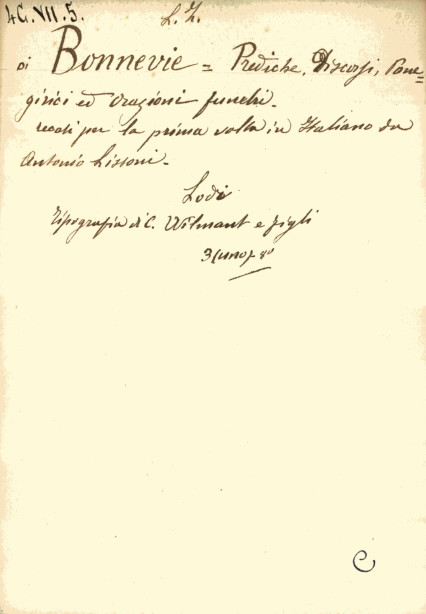 4C.VII.5.
L. Z.
di Bonnevie = Prediche, Discorsi, Pane=
girici ed Orazioni funebri.
recati per la prima volta in Italiano da
Antonio Lissoni.
Lodi
Tipografia di C. Wilmant e figli
8º
C